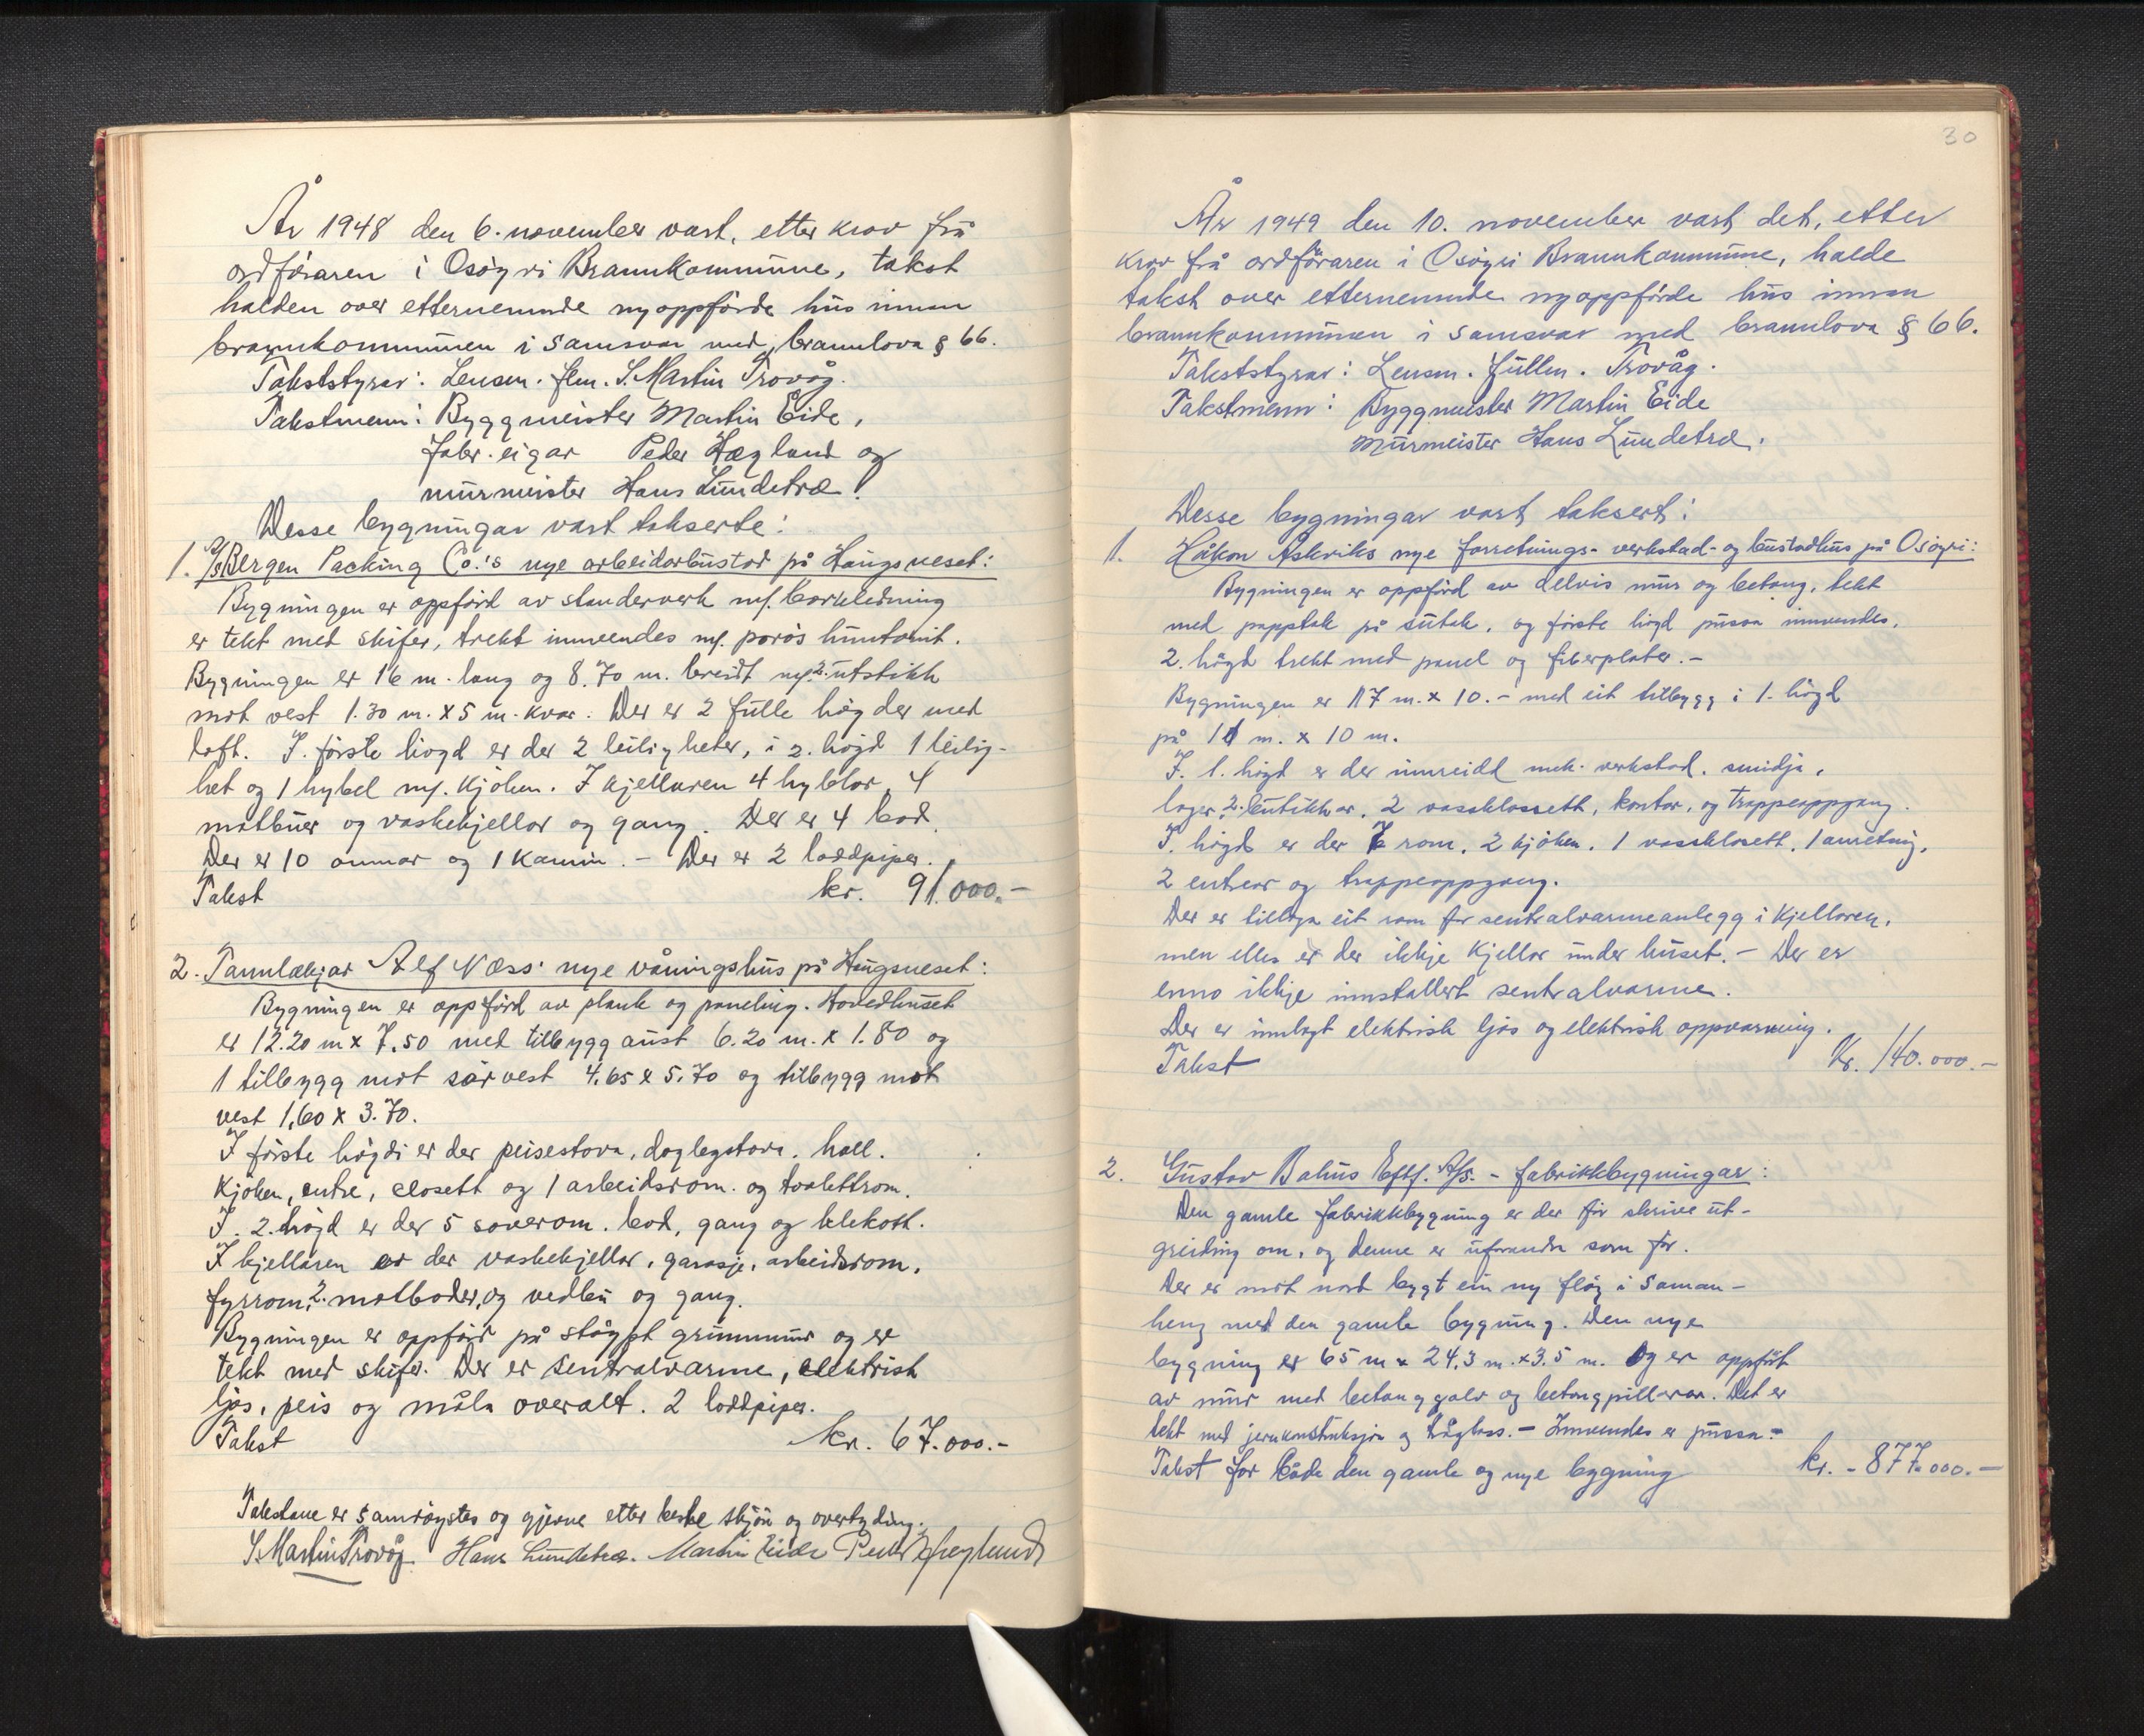 År 1948 den 6. november vart, etter krav frå
ordföraren i Osöyri Brannkommune, takst
halden over etternemnde nyoppförde hus innan
brannkommunen i samsvar med brannlova § 66.
Takststyrar: Lensm. flm. S. Martin Trovåg.
Takstmenn: Byggmeister Martin Eide,
fabr. eigar Peder Hægland og
murmeister Hans Lundetræ.
Desse bygningar vart takserte:
1. A/S Bergen Packing Co.'s nye arbeidarbustad på Haugsneset:
Bygningen er oppförd av standerverk m/. bordkledning
er tekt med skifer, trekt innvendes m/. porös huntonit.
Bygningen er 16 m. lang og 8.70 m. breidt m/. 2 utstikk
mot vest 1.30 m. x 5 m. kvar. Der er 2 fulle högder med
loft. I förste högd er der 2 leiligheter, i 2. högd 1 leilig-
het og 1 hybel m/. kjöken. I kjellaren 4 hyblar, 4
matbuer og vaskekjellar og gang. Der er 4 bad.
Der er 10 omnar og 1 kamin. - Der er 2 loddpiper.
Takst kr. 91.000.-
2. Tannlækjar Alf Næss' nye våningshus på Haugsneset:
Bygningen er oppförd av plank og paneling. Hovedhuset
er 12.20 m x 7.50 med tilbygg aust 6.20 m. x 1.80 og
1 tilbygg mot sørvest 4.65 x 5.70 og tilbygg mot
vest 1,60 x 3.70.
I förste högdi er der peisestova, daglegstova. hall.
kjöken, entre, closett og 1 arbeidsrom. og toalettrom.
I. 2. högd er der 5 soverom. bad, gang og klekott.
I kjellaren er der vaskekjellar, garasje, arbeidsrom,
fyrrom, 2. matboder, og vedbu og gang.
Bygningen er oppförd på støypt grunnmur og er
tekt med skifer. Der er sentralvarme, elektrisk
ljos, peis og måla overalt. 2 loddpiper.
Takst kr. 67.000.-
Takstane er samröystes og gjevne etter beste skjön og overtyding.
S. Martin Trovåg. Hans Lundetræ. Martin Eide Peder Hægland
30
År 1949 den 10. november vart det, etter
krav frå ordföraren i Osöyri Brannkommune, halde
takst over etternemnde nyoppförde hus innan
brannkommunen i samsvar med brannlova § 66.
Takststyrar: Lensm. fullm. Trovåg.
Takstmenn: Byggmeister Martin Eide
murmeister Hans Lundetræ.
Desse bygningar vart taksert:
1. Håkon Askviks nye forretnings- verkstad- og bustadhus på Osöyri:
Bygningen er oppförd av delvis mur og betong, tekt
med papptak på sutak, og förste högd pussa innvendes,
2. högd trekt med panel og fiberplater. -
Bygningen er 17 m. x 10. - med eit tilbygg i 1. högd
på 11 m. x 10 m.
I. 1. högd er der innreidd mek. verkstad. smidja,
lager, 2. butikkar, 2 vassklosett, kontor, og trappeoppgang.
I. högd er der 7 rom, 2 kjöken. 1 vassklosett, 1 anretning,
2 entrear og trappeoppgang.
Der er tillaga eit rom for sentralvarmeanlegg i kjellaren,
men elles er der ikkje kjellar under huset. - Der er
enno ikkje innstallert sentralvarme.
Der er innlagt elektrisk ljos og elektrisk oppvarming.
Takst kr. 140.000.-
2. Gustav Bahus Eftf. A/s. - fabrikkbygningar:
Den gamle fabrikkbygning er der för skrive ut-
greiding om, og denne er uforandra som för.
Der er mot nord bygt ein ny flöy i saman-
heng med den gamle bygning. Den nye
bygning er 65 m x 24,3 m. x 3.5 m. Og er oppfört
av mur med betonggolv og betongpillarar. Det er
tekt med jernkonstruksjon og trådglass. - Innvendes er pussa. -
Takst for både den gamle og nye bygning kr. - 877.000.-